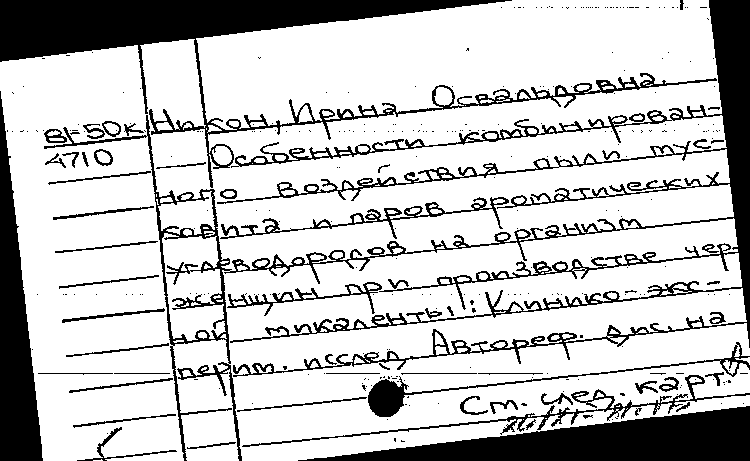 81-50к Никон, Ирина Освальдовна.
4710 Особенности комбинирован-
ного воздействия пыли мус-
ковита и паров ароматических
углеводородов на организм
женщин при производстве чер-
ной микаленты: Клинико-экс-
перим. исслед. Автореф. дис. на
См. след. карт.